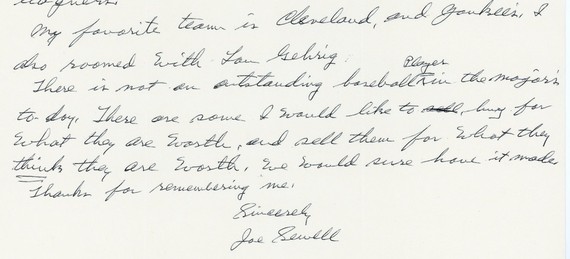 my favorite team is Cleveland, and Yankees. I
also roomed with Lou Gehrig.
Player
There is not an outstanding baseball in the majors
to-day. There are some I would like to sell, buy for
what they are worth, and sell them for what they
think they are worth. We would sure have it made
Thanks for remembering me.
Sincerely
Joe Sewell